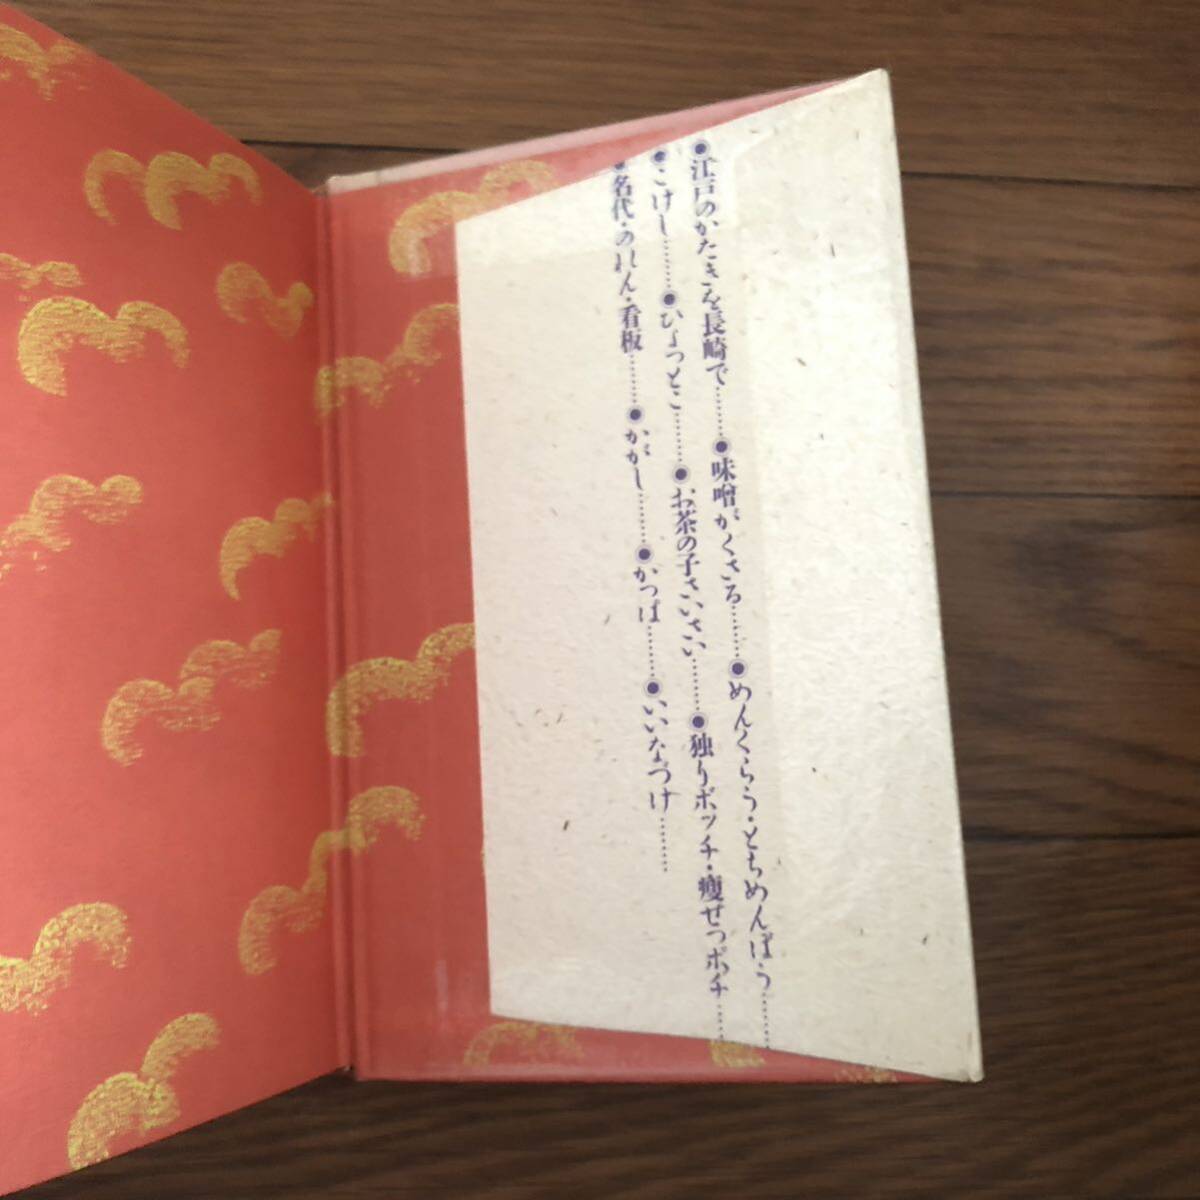 ●江戸のかたきを長崎で………●味噌がくさる………●めんくらう・とちめんぼう………
●こけし………●ひょっとこ………●お茶の子さいさい………●独りボッチ・痩せっポチ………
●名代・のれん・看板………●かがし………●かっぱ………●いいなづけ………